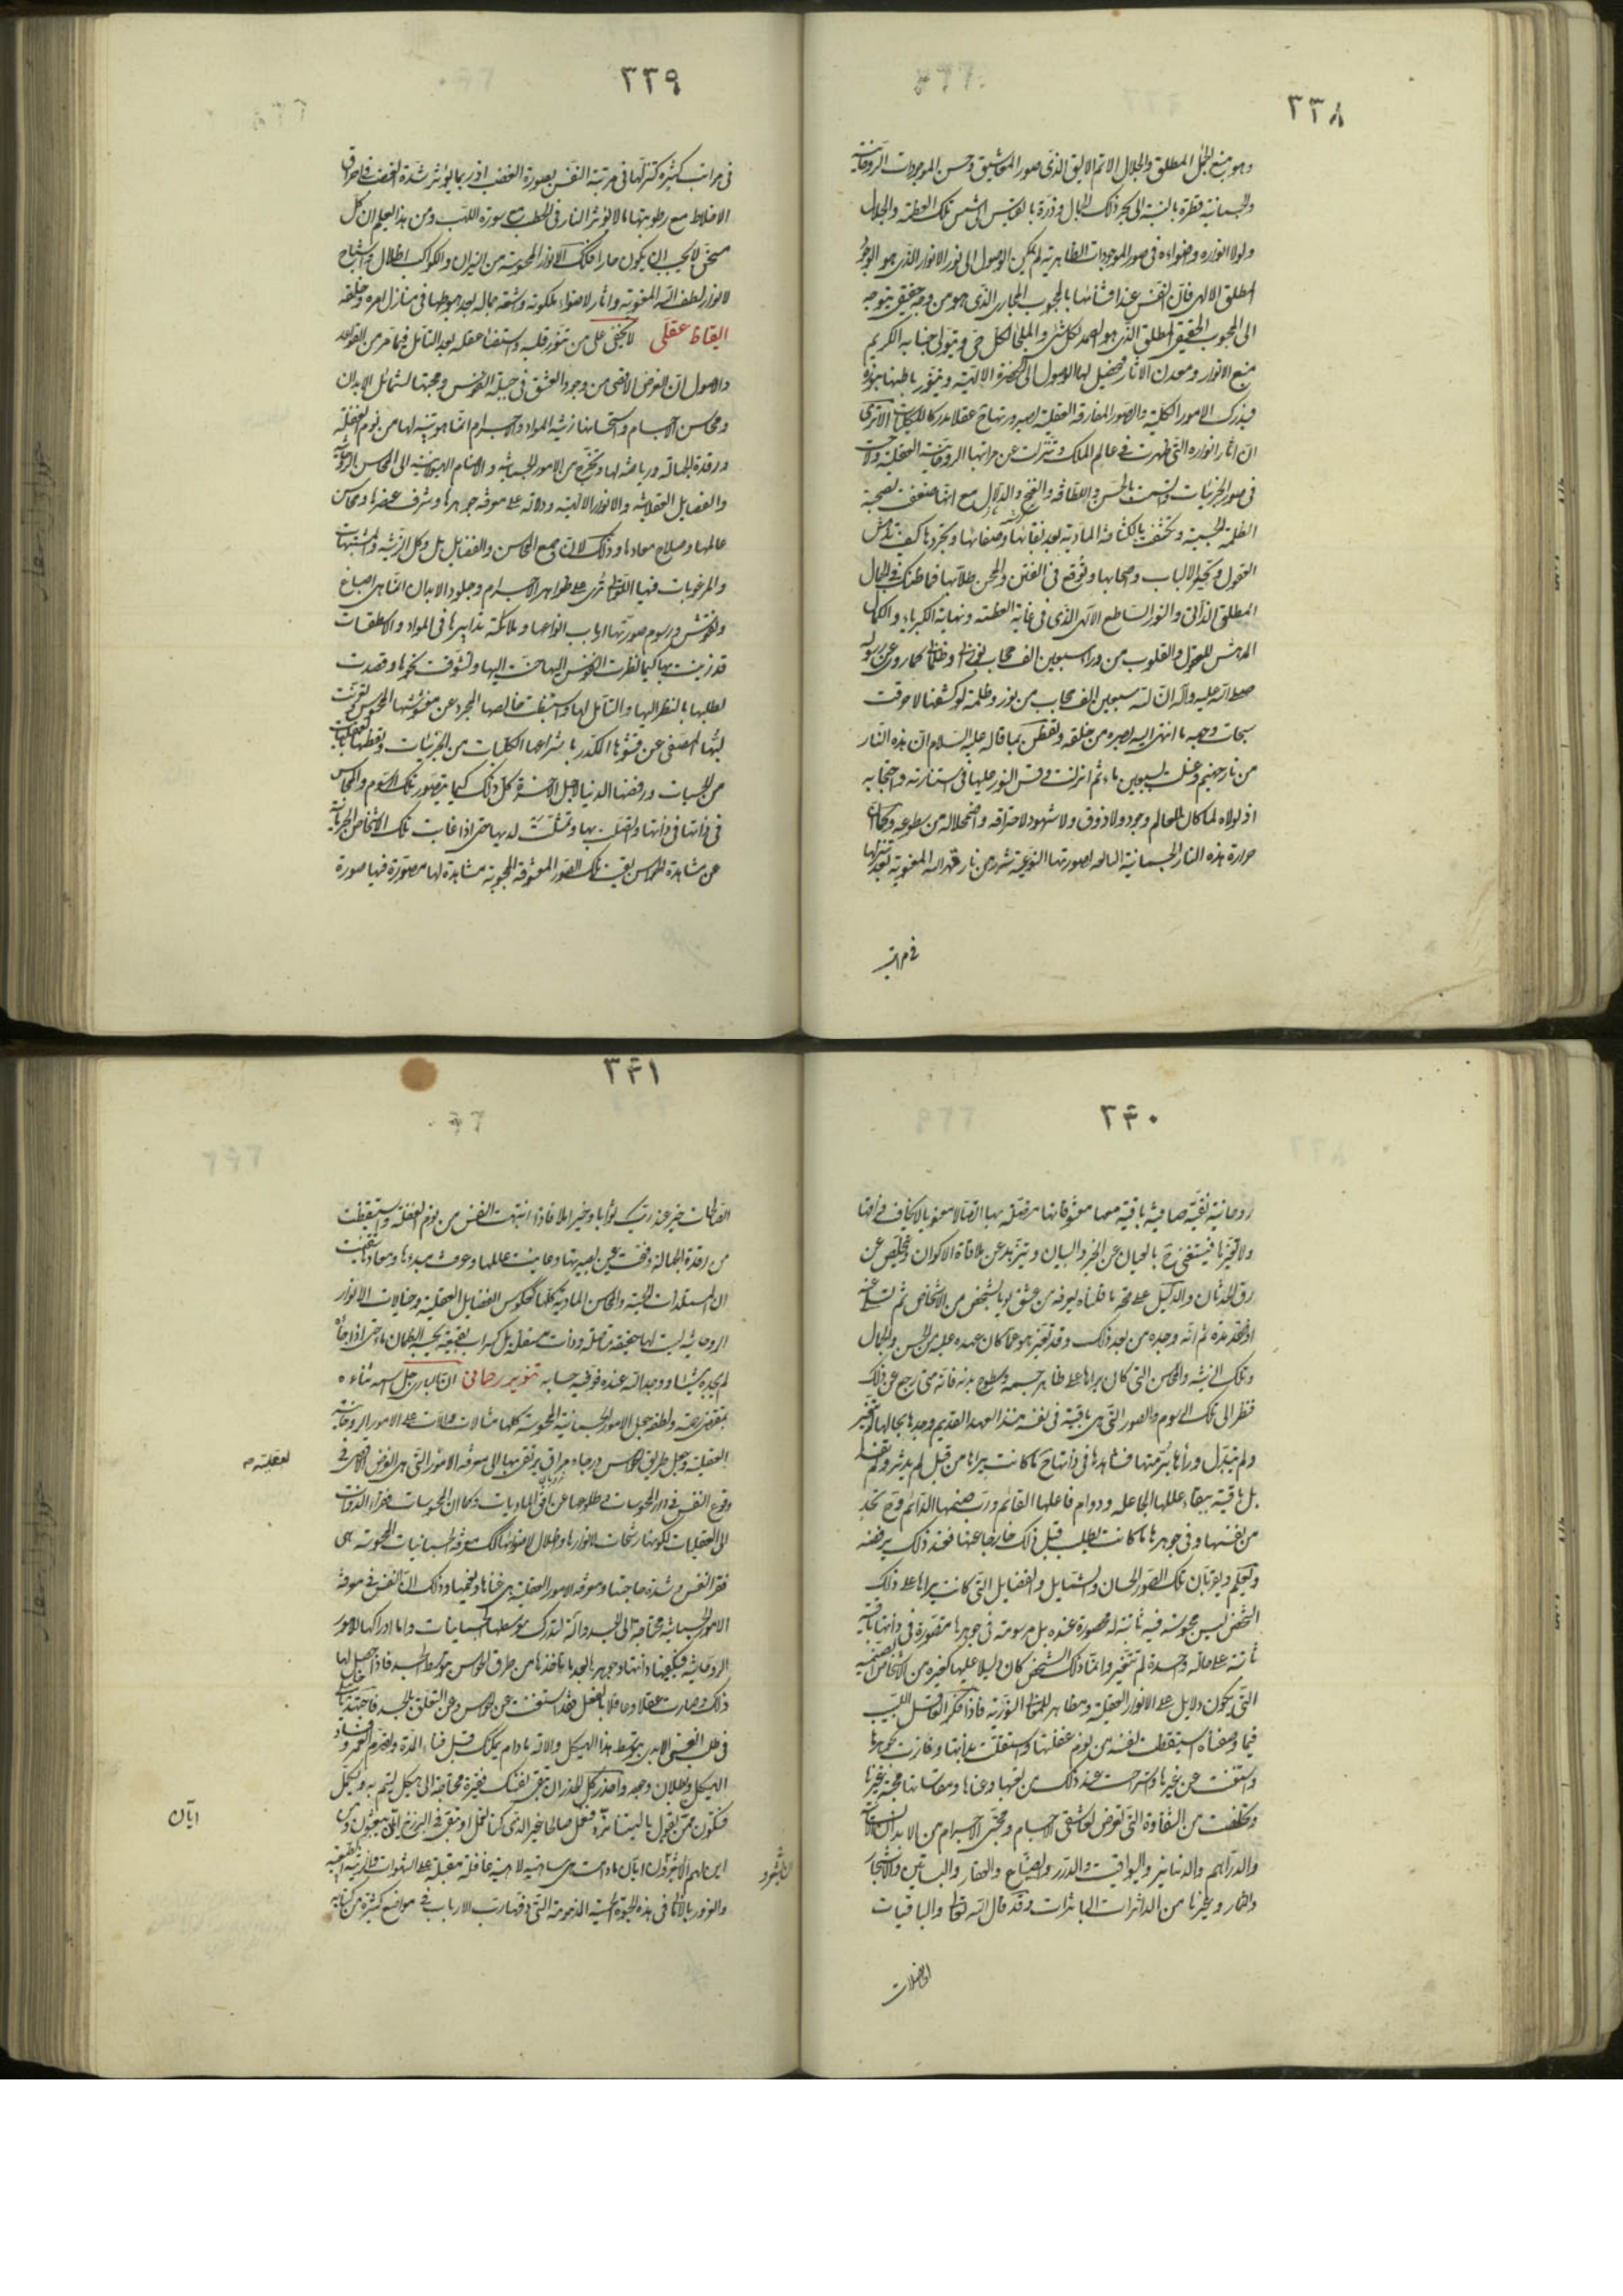 ٢٣٨
وهو منبع الجمال المطلق والجلال الاتم الاليق الذى صور المعاشيق وحسن الموجودات الروحانية
والجسمانية قطرة بالنسبة الى بحر ذلك الجمال وذرة بالقياس الى شمس تلك العظمة والجلال
ولولا انواره واضواءه فى صور الموجودات الظاهرية لم يمكن الوصول الى نور الانوار الذى هو الوجود
المطلق الالهى فان النفس عند افتتانها بالمحبوب المجازى الذى هو من وجه حقيقى يتوجه
الى المحبوب الحقيقى المطلق الذى هو الصمد لكل شئ والملجأ لكل حى ويتولى جنابه الكريم
منبع الانوار ومعدن الاثار فيحصل لها الوصول الى الحضرة الالهية ويتنور باطنها بنوره
فيدرك الامور الكلية والصور المفارقة العقلية لصيرورتها ح عقلا مدركا للكليات الا ترى
ان اثار انواره التى ظهرت فى عالم الملك وتنزلت عن مراتبها الروحانية العقلية ولاحت
فى صور الجزئيات واتسمت بالحسن واللطافة والغنج والدلال مع انها ضعفت بصحبة
الظلمة الجسمية وتكثفت بالكثافة المادية بعد نقائها وصفائها وتجردها كيف تدهش
العقول وتحير الالباب وصحابها وتوقع فى الفتن والمحن طلابها فما ظنك فى الجمال
المطلق الذاتى والنور الساطع الالهى الذى فى غاية العظمة ونهاية الكبرياء والكمال
المدهش للعقول والقلوب من وراء سبعين الف حجاب نورانى وظلمانى كما روى عن رسوله
صلى الله عليه واله ان لله سبعين الف حجاب من نور وظلمة لو كشفها لاحرقت
سبحات وجهه ما انتهى اليه بصره من خلقه وتفطن بما قاله عليه السلام ان هذه النار
من نار جهنم وغسلت بسبعين ماء ثم انزلت وقس النور عليها فى استنارته واحتجابه
اذ لولاه لما كان للعالم وجود ولا ذوق ولا شهود لاحتراقه واضمحلاله من سطوعه وكما ان
حرارة هذه النار الجسمانية التابعة لصورتها النوعية شرر من نار قهر الله المعنوية بعد تنزلها
فى مراتب
٢٣٩
فى مراتب كثيرة كتنزلها فى مرتبة النفس بصورة الغضب اذ ربما يؤثر شدة الغضب فى احراق
الاخلاط مع رطوبتها ما لا يؤثر النار فى الحطب مع سورة اللهب ومن هذا يعلم ان كل
مسخن لا يجب ان يكون حارا فكذلك الانوار المحسوسة من النيران والكواكب اظلال واشباح
لانوار لطف الله المعنوية واثار لاضواء ملكوته واشعة جماله بعد هبوطها فى منازل امره وخلقه
ايقاظ عقلى لا يخفى على من تنور قلبه واستضاء عقله بعد التامل فيما مر من القواعد
والاصول ان الغرض الاقصى من وجود العشق فى جبلة النفوس ومحبتها لشمائل الابدان
ومحاسن الاجسام واستحسانها زينة المواد والاجرام انما هو تنبيه لها من نوم الغفلة
ورقدة الجهالة ورياضة لها وتخرج من الامور الجسمانية والاصنام الهيولانية الى المحاسن الروحانية
والفضايل العقلانية والانوار الالهية ودلالة على معرفة جوهرها وشرف عنصرها ومحاسن
عالمها وصلاح معادها وذلك لان جميع المحاسن والفضايل بل وكل الزينة والمشتهيات
والمرغوبات فيها اللواتى ترى على ظواهر الاجرام وجلود الابدان انما هى اصباغ
ونقوش ورسوم صورتها ارباب انواعها وملائكة تدابيرها فى المواد والاسطقسات
قد زينت بها كيما نظرت النفوس اليها حنت اليها وتشوقت نحوها وقصدت
لطلبها بالنظر اليها والتامل لها واستنبطت خالصها المجرد عن مغشوشها المحسوس وتعرفت
لبها المصفى عن قشرها الكدر بانتزاعها الكليات من الجزئيات وتفطنها بالعقليات
من الحسيات ورفضها الدنيا لاجل الاخرة كل ذلك كيما يتصور تلك الرسوم والمحاسن
فى ذاتها واتصلت بها وتمثلت لديها حتى اذا غابت تلك الاشخاص الجرمانية
عن مشاهدة الحواس بقيت تلك الصور المعشوقة المحبوبة مشاهدة لها مصورة فيها صورة
٢٤٠
روحانية نقية صافية باقية معها معشوقاتها متصلة بها اتصالا معنويا لا يخاف فراقها
ولا تغيرها فيستغنى ح بالعيان عن الخبر والبيان ويتزهد عن ملاقاة الالوان ويتخلص عن
رق الحدثان والدليل على صحة ما قلناه يعرفه من عشق يوما لشخص من الاشخاص ثم تسلى عنه
او فقده مدة ثم انه وجده من بعد ذلك وقد تغير هو عما كان عهده عليه من الحسن والجمال
وتلك الزينة والمحاسن التى كان يراها على ظاهر جسمه وسطوح بدنه فانه متى رجع عن ذلك
فنظر الى تلك الرسوم والصور التى هى باقية فى نفسه منذ العهد القديم وجدها بحالها لم تتغير
ولم يتبدل وراها برمتها فشاهدها فى ذاتها ح ما كانت يراها من قبل لم يدثر ولم يفسد
بل باقية ببقاء عللها الجاعلة ودوام فاعلها القائم ورب صنمها الدائم وح تجد
من نفسها وفى جوهرها ما كانت يطلب قبل ذلك خارجا عنها فعند ذلك يرفضه
ويعلم ويقر بان تلك الصور الحسان والشمايل والفضايل التى كانت يراها على ذلك
الشخص ليس محبوسة فيه ثابتة له محصورة عنده بل مرسومة فى جوهرها متصورة فى ذاتها باقية
ثابتة على حالة واحدة لم تتغير وانما ذلك الشخص كان دليلا عليها كغيره من الاشخاص الصنمية
التى يكون دلايل على الانوار العقلية ومظاهر للمعانى النورية فاذا فكر العاقل اللبيب
فيما وصفناه استيقظت نفسه من نوم غفلتها واستقلت بذاتها وفازت بجوهرها
واستغنت عن غيرها واستراحت عند ذلك من تعبها وعنائها ومقاساتها محبة غيرها
وتخلصت من الشقاوة التى تعرض لعاشقى الاجسام ومحبى الاجرام من الابدان الانسانية
والدراهم والدنانير واليواقيت والدرر والضياع والعقار والبساتين والاشجار
والثمار وغيرها من الداثرات البائرات وقد قال الله تعالى والباقيات
الصالحات
٢٤١
الصالحات خير عند ربك ثوابا وخير املا فاذا انتبهت النفس من نوم الغفلة واستيقظت
من رقدة الجهالة وفتحت عين بصيرتها وعاينت عالمها وعرفت مبدءها ومعادها تيقنت
ان المستلذات الجسمية والمحاسن المادية كلها كعكوس الفضايل العقلية وخيالات الانوار
الروحانية ليست لها حقيقة متاصلة وذات مستقلة بل كسراب بقيعة يحسبه الظمان ماء حتى اذا جاءه
لم يجده شيئا ووجد الله عنده فوفيه حسابه تنوير رحمانى ان البارى جل اسمه ثناءه
بمقتضى رحمته ولطفه جعل الامور الجسمانية المحسوسة كلها مثالات ودالات على الامور الروحانية
العقلية وجعل طريق الحواس درجا ومراقى يرتقى بها الى معرفة الامور التى هى الغرض الاقصى فى
العقلية صح
وقوع النفس فى دار المحسوسات وطلوعها عن افق الماديات وكما ان المحسوسات فقراء الذوات
الى العقليات لكونها رشحات لانوارها واظلال لاضوائها كذلك معرفة الجسمانيات المحسوسة هى
فقر النفس وشدة حاجتها ومعرفة الامور العقلية هى غناها ونعيمها وذلك ان النفس فى معرفة
الامور الجسمانية محتاجة الى الجسد والاته لتدرك بتوسطها الجسمانيات واما ادراكها للامور
الروحانية فيكفيها ذاتها وجوهرها بعد ما ياخذها من طرق الحواس بتوسط الجسد فاذا حصل لها
ذلك وصارت عقلا وعاقلا بالفعل فقد استغنت عن الحواس وعن التعلق بالجسد فاجتهد يا حبيبى
فى طلب الغنى الابدى بتوسط هذا الهيكل والاته مادام يمكنك قبل فناء المدة وتصرم العمر وفساد
الهيكل وبطلان وجوده واحذر كل الحذر ان تبقى نفسك فقيرة محتاجة الى هيكل يتم به وتكمل
فتكون ممن يقول يا ليتنا نرد فنعمل صالحا غير الذى كنا نعمل او تبقى فى البرزخ الى يوم يبعثون ومن
اين لهم ان يشعروا ايان مادامت هى ساهية لاهية غافلة مقبلة على الشهوات والزينة الطبيعية
ايان
والغرور بالامانى فى هذه الحيوة الحسية المذمومة التى ذمها رب الارباب فى مواضع كثيرة من كتابه